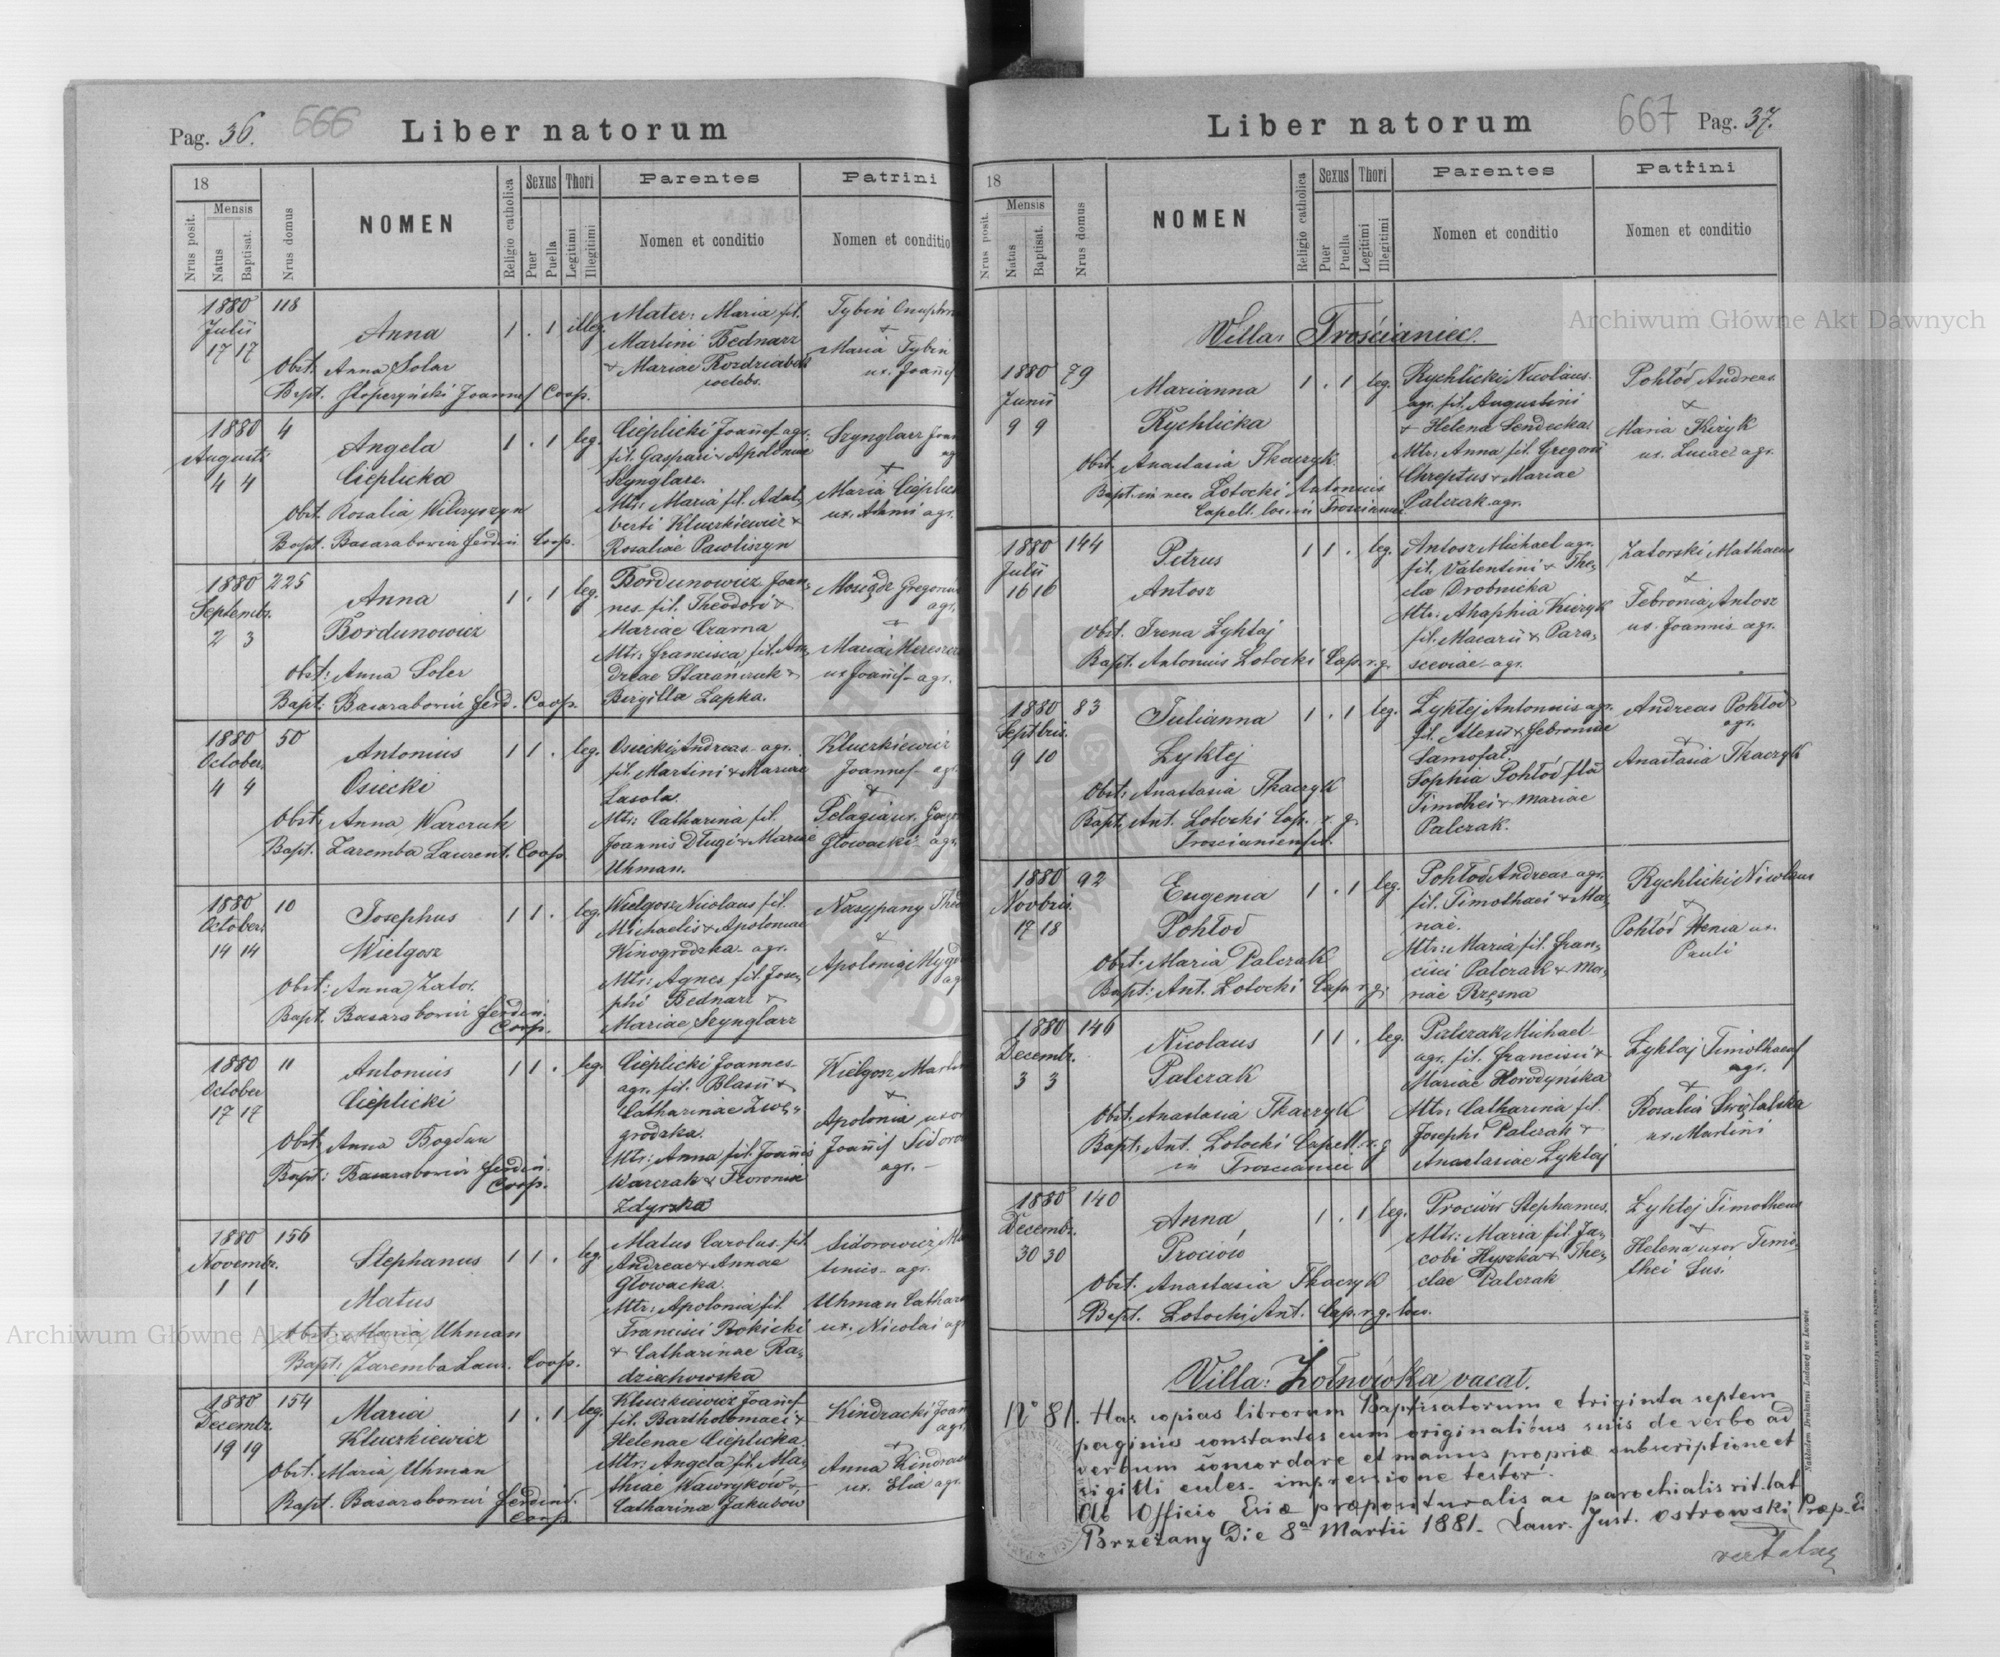 Pag. 36. 666 Liber natorum
18
Mensis
Nrus posit.
Natus
Baptisat.
Nrus domus
NOMEN
Religio catholica
Sexus
Puer
Puella
Thori
Legitimi
Illegitimi
Parentes
Nomen et conditio
Patrini
Nomen et conditio
1880 118
Julii
17 17
Anna 1 . 1 illeg.
Obst. Anna Solar
Bapt. Joannes Coop.
Mater: Maria fil.
Martini Bednarz
& Mariae
coelebs.
Tybin
&
Maria Tybin
ux. Joannis
1880 4
Augusti
4 4
Angela 1 . 1 leg.
Cieplicka
Obst. Rosalia
Bapt. Basarabowicz Ferdin. Coop.
Cieplicki Joannes agr.
fil. Gaspari & Apoloniae
Szynglarz.
Mtr: Maria fil. Adal-
berti Kluczkiewicz &
Rosaliae Pawliszyn
Szynglarz
&
Maria
ux. Adami agr.
1880 225
Septembr.
2 3
Anna 1 . 1 leg.
Bordunowicz
Obst: Anna Soler
Bapt: Basarabowicz Ferd. Coop.
Bordunowicz Joan-
nes fil. Theodori &
Mariae Czarna
Mtr: Francisca fil. An-
dreae &
Birgitta Lapka.
Gregorius
agr.
&
Maria
ux Joannis agr.
1880 50
October.
4 4
Antonius 1 1 . leg.
Osiecki
Obst: Anna Warczuk
Bapt. Zaremba Laurent. Coop.
Osiecki Andreas agr.
fil. Martini & Mariae
Lasola.
Mtr: Catharina fil.
Joannis Długi & Mariae
Uhman.
Kluczkiewicz
Joannes agr.
&
Pelagia ux.
Głowacki agr.
1880 10
October.
14 14
Josephus 1 1 . leg.
Wielgosz
Obst: Anna Zator.
Bapt. Basarabowicz Ferdin.
Coop.
Wielgosz Nicolaus fil.
Michaelis & Apoloniae
Winogrodzka agr.
Mtr: Agnes fil. Jose-
phi Bednarz &
Mariae Szynglarz
&
Apolonia
1880 11
October
17 17
Antonius 1 1 . leg.
Cieplicki
Obst: Anna Bogdan
Bapt: Basarabowicz Ferdin.
Coop.
Cieplicki Joannes
agr. fil. Blasii &
Catharinae
Mtr: Anna fil. Joannis
Warczak &
Zdyrska
Wielgosz
&
Apolonia uxor
Joannis
agr.
1880 156
Novembr.
1 1
Stephanus 1 1 . leg.
Matus
Obst: Maria Uhman
Bapt: Zaremba Laur. Coop.
Matus Carolus fil.
Andreae & Annae
Głowacka.
Mtr: Apolonia fil.
Francisci Rokicki
& Catharinae Ra-
dziechowska
Sidorowicz
agr.
Uhman
ux. Nicolai
1880 154
Decembr.
19 19
Maria 1 . 1 leg.
Kluczkiewicz
Obst. Maria Uhman
Bapt. Basarabowicz Ferdind.
Coop.
Kluczkiewicz Joannes
fil. Bartholomaei &
Helenae Cieplicka.
Mtr: Angela fil. Ma-
thiae Wawryków &
Catharina Jakubów
Kindracki
agr.
&
Anna
ux. Elia agr.
Liber natorum 667 Pag. 37.
18
Mensis
Nrus posit.
Natus
Baptisat.
Nrus domus
NOMEN
Religio catholica
Sexus
Puer
Puella
Thori
Legitimi
Illegitimi
Parentes
Nomen et conditio
Patrini
Nomen et conditio
Villa: Trościaniec.
1880 79
Junii
9 9
Marianna 1 . 1 leg.
Rychlicka
Obst. Anastasia Tkaczyk
Bapt. in nec. Łotocki Antonius
Capell. loc. in
Rychlicki Nicolaus
agr. fil. Augustini
& Helena Sendecka
Mtr: Anna fil. Gregorii
Chreptus & Mariae
Palczak agr.
Pohłód Andreas
&
Maria Kiryk
ux. Lucae agr.
1880 144
Julii
16 16
Petrus 1 1 . leg.
Antosz
Obst. Irena Zyktaj
Bapt. Antonius Łotocki Cap. r. g.
Antosz Michael agr.
fil. Valentini & The-
cla Drobnicka
Mtr: Ahaphia
fil. Macarii & Para-
sceviae agr.
Zatorski Mathaeus
&
Febronia Antosz
ux. Joannis agr.
1880 83
Septbris.
9 10
Julianna 1 . 1 leg.
Zyktej
Obst: Anastasia Tkaczyk
Bapt. Ant. Łotocki Cap. r. g.
Zyktej Antonius agr.
fil. Alexii & Febroniae
Samofał.
Sophia Pohłód fila
Timothei & Mariae
Palczak.
Andreas Pohłod
agr.
&
Anastasia Tkaczyk
1880 92
Novbris.
17 18
Eugenia 1 . 1 leg.
Pohłod
Obst: Maria Palczak
Bapt: Ant. Łotocki Cap. r. g.
Pohłod Andreas agr.
fil. Timothaei & Ma-
riae.
Mtr: Maria fil. Fran-
cisci Palczak & Ma-
riae Rzęsna
Rychlicki Nicolaus
&
Pohłód ux.
Pauli
1880 146
Decembr.
3 3
Nicolaus 1 1 . leg.
Palczak
Obst: Anastasia Tkaczyk
Bapt: Ant. Łotocki Capell. r. g
in Trościaniec
Palczak Michael
agr. fil. Francisci &
Mariae Horodyńska
Mtr: Catharina fil.
Josephi Palczak &
Anastasiae Zyktaj
Zyktaj Timothaeus
agr.
&
Rosalia
ux. Martini
1880 140
Decembr.
30 30
Anna 1 . 1 leg.
Prociów
Obst. Anastasia Tkaczyk
Bapt. Łotocki Ant. Cap. r. g. loc.
Prociów Stephanus.
Mtr: Maria fil. Ja-
cobi Hyszka & The-
clae Palczak
Zyktej Timotheus
&
Helena uxor Timo-
thei Sus.
Villa: Żołnówka vacat.
No 81. Has copias librorum Baptisatorum e triginta septem
paginis constantes cum originalibus suis de verbo ad
verbum concordare et manus propriae subscriptione et
sigilli eccles. impressione testor.
Ab Officio praepositurali ac parochialis rit. lat.
Brzeżany Die 8a Martii 1881. Laur. Just. Ostrowski Praep.
Archiwum Główne Akt Dawnych
Archiwum Główne Akt Dawnych